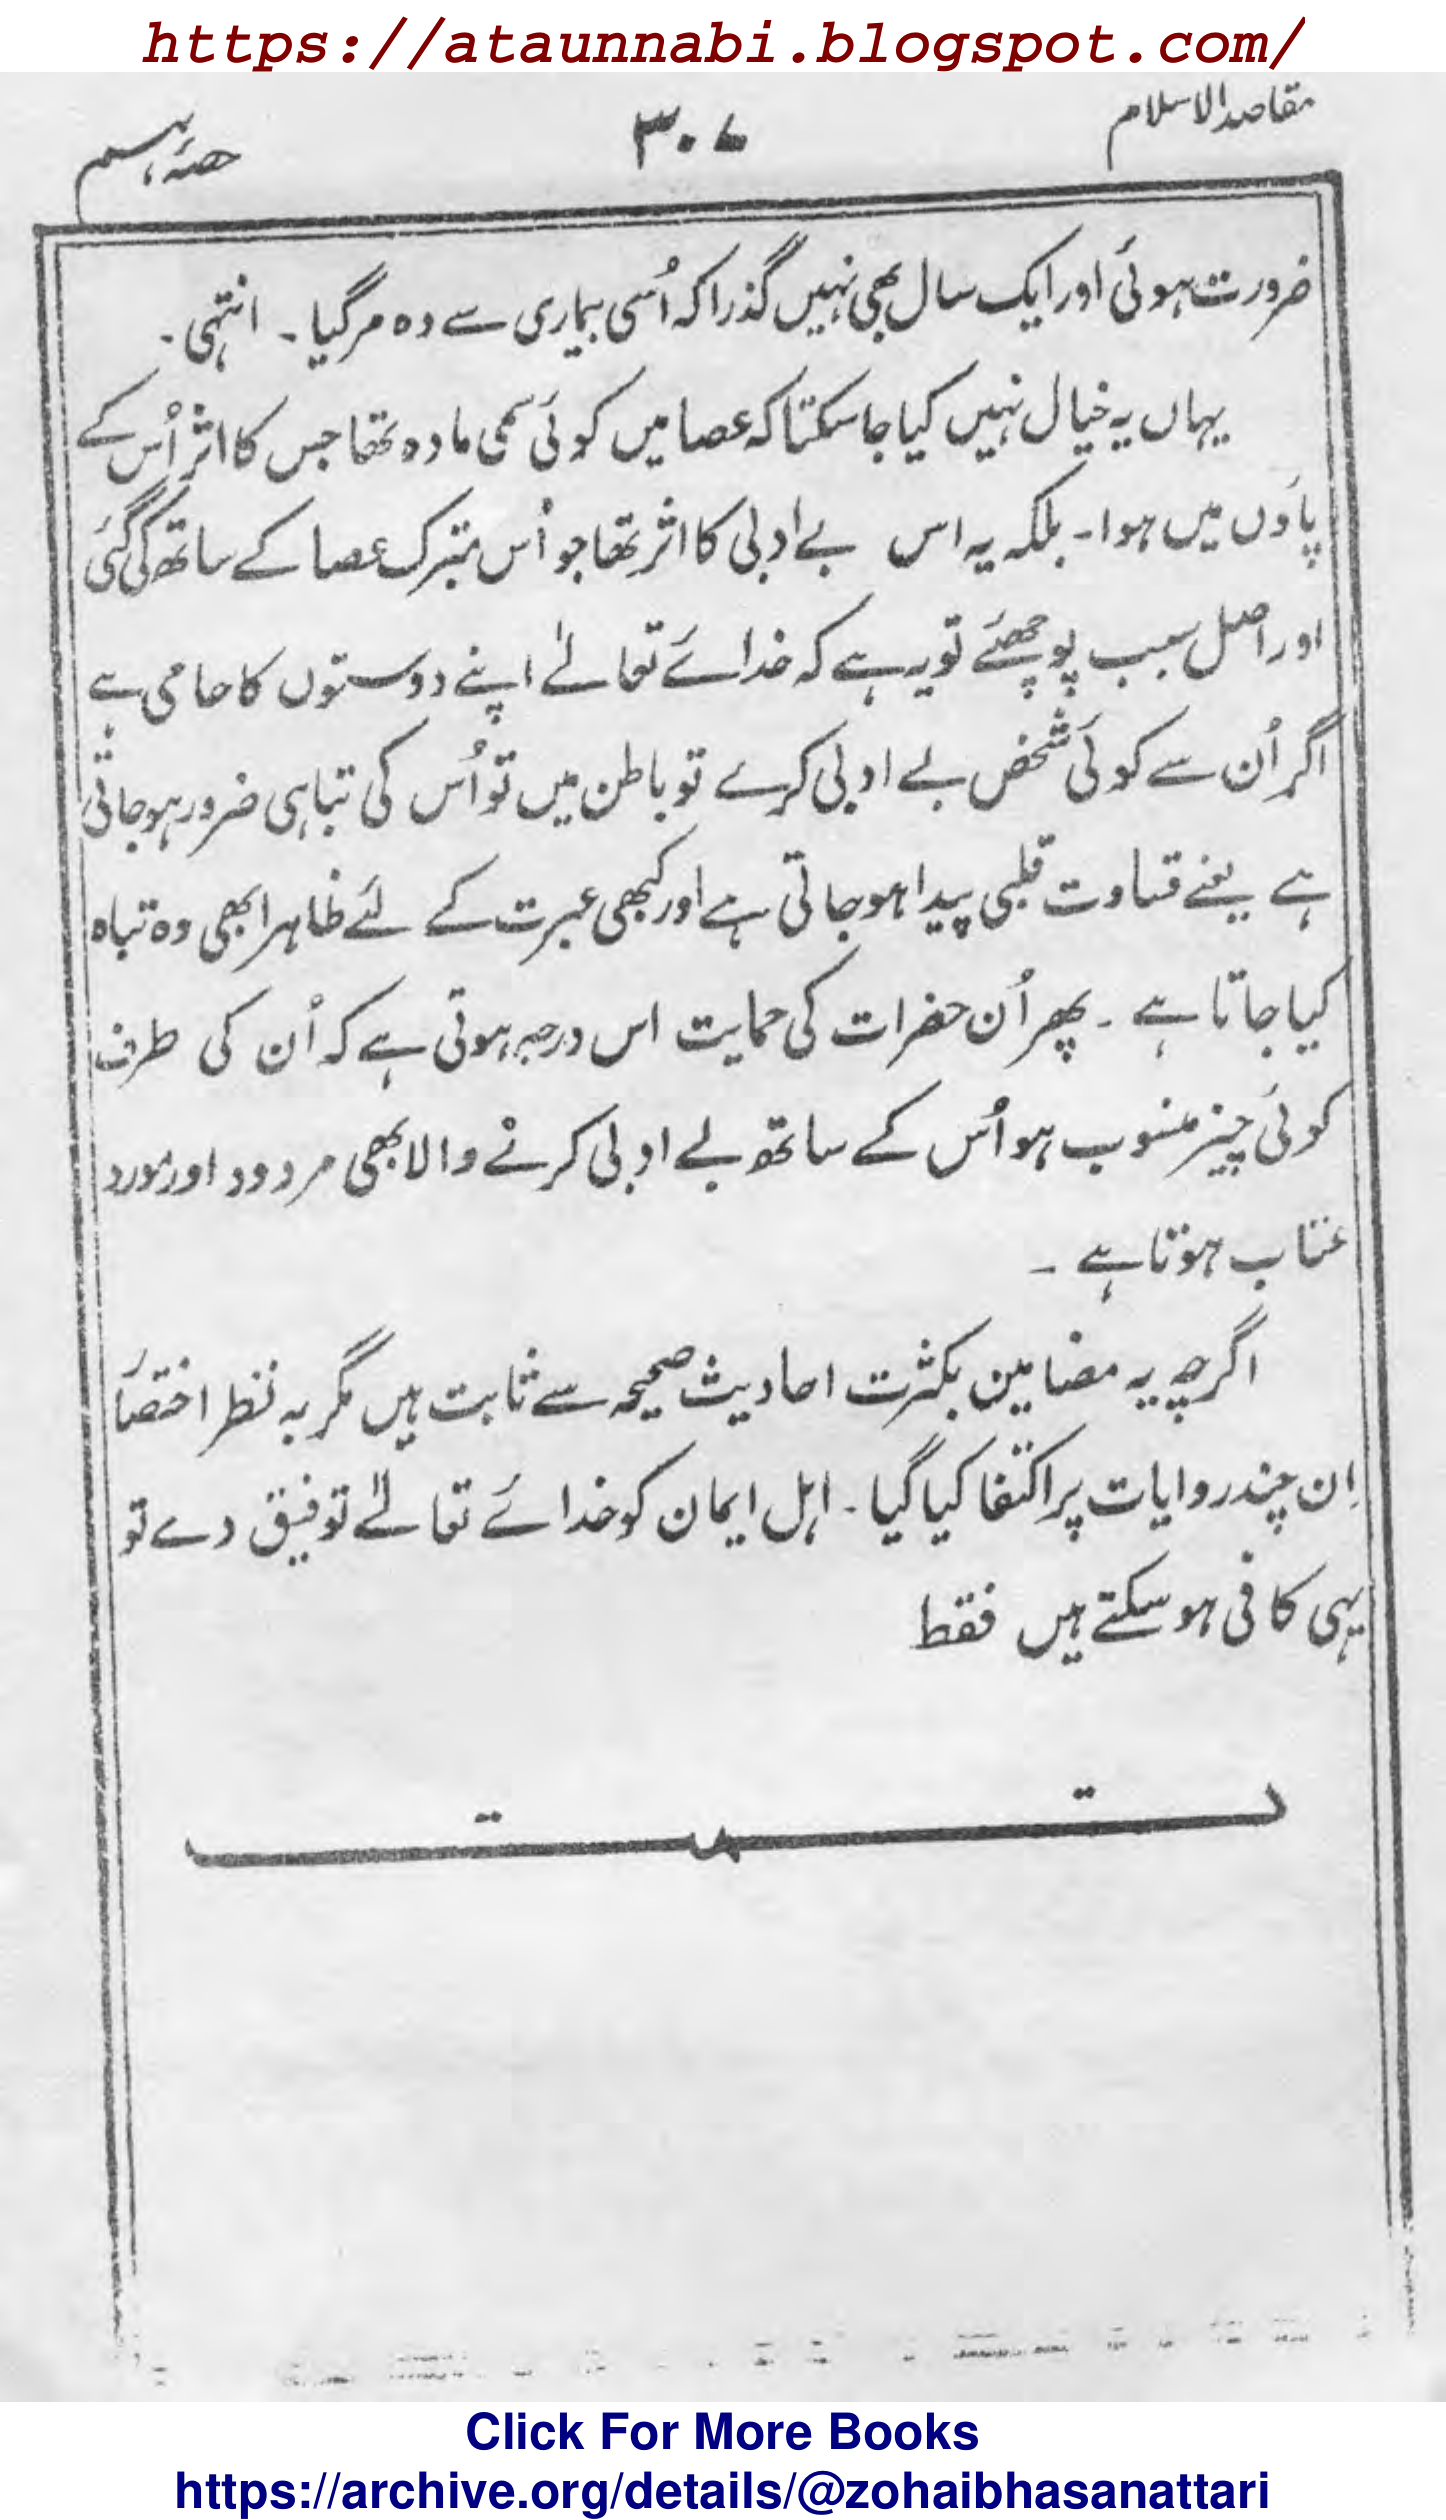 https://ataunnabi.blogspot.com/
مقاصد الاسلام
۳۰۷
حصّہ نہم
ضرورت ہوئی اور ایک سال بھی نہیں گذرا کہ اُسی بیماری سے وہ مرگیا ۔ انتہی ۔
یہاں یہ خیال نہیں کیا جاسکتا کہ عصا میں کوئی سمی مادہ تھا جس کا اثر اُس کے
پاؤں میں ہوا ۔ بلکہ یہ اس بے ادبی کا اثر تھا جو اُس متبرک عصا کے ساتھ کی گئی
اور اصل سبب پوچھئے تو یہ ہے کہ خدائے تعالےٰ اپنے دوستوں کا حامی ہے
اگر اُن سے کوئی شخص بے ادبی کرے تو باطن میں تو اُس کی تباہی ضرور ہوجاتی
ہے یعنے قساوت قلبی پیدا ہوجاتی ہے اور کبھی عبرت کے لئے ظاہرا بھی وہ تباہ
کیا جاتا ہے ۔ پھر اُن حضرات کی حمایت اس درجہ ہوتی ہے کہ اُن کی طرف
کوئی چیز منسوب ہو اُس کے ساتھ بے ادبی کرنے والا بھی مردود اور مورد
عتاب ہوتا ہے ۔
اگرچہ یہ مضامین بکثرت احادیث صحیحہ سے ثابت ہیں مگر بہ نظر اختصار
اِن چند روایات پر اکتفا کیا گیا ۔ اہل ایمان کو خدائے تعالےٰ توفیق دے تو
یہی کافی ہوسکتے ہیں فقط
تمت
Click For More Books
https://archive.org/details/@zohaibhasanattari